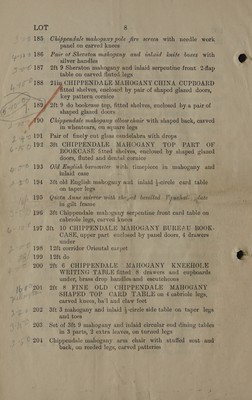 LOT 8
185 Chippendale mahogany pole fire screen with needle work
panel on carved knees
186 Pair of Sheraton mahogany and inlaid knife boxes with
silver handles
187 2ft 9 Sheraton mahogany and inlaid serpentine front 2-flap
table on carved fluted legs
188 21in CHIPPENDALE MAHOGANY CHINA CUPBOARD
fitted shelves, enclosed by pair of shaped glazed doors,
key pattern cornice
189 2ft 9 do bookcase top, fitted shelves, enclosed by a pair of
shaped glazed doors
190 Chippendale mahogany elbow chair with shaped back, carved
in wheatears, on square legs
191 Pair of finely cut glass candelabra with drops
192 3ft CHIPPENDALE MAHOGANY TOP PART OF
BOOKCASE fitted shelves, enclosed by shaped glazed
doors, fluted and dental cornice
193 Old English barometer with timepiece in mahogany and
inlaid case
194 3ft old English mahogany and inlaid ½-circle card table
on taper legs
195 Queen Anne mirror with
in gilt frames
196 3ft Chippendale mahogany serpentine front card table on
cabriole legs, carved knees
197 3ft 10 CHIPPENDALE MAHOGANY BUREAU BOOK-
CASE, upper part enclosed by panel doors, 4 drawers
under
198 12ft corridor Oriental carpet
199 12ft do
200 3ft 6 CHIPPENDALE MAHOGANY KNEEHOLE
WRITING TABLE fitted 8 drawers and cupboards
under, brass drop handles and escutcheons
201 2ft 8 FINE OLD CHIPPENDALE MAHOGANY
SHAPED TOP CARD TABLE on 4 cabriole legs,
carved knees, ball and claw feet
202 3ft 3 mahogany and inlaid ½-circle side table on taper legs
and toes
203 Set of 3ft 9 mahogany and inlaid circular end dining tables
in 3 parts, 2 extra leaves, on turned legs
204 Chippendale mahogany arm chair with stuffed seat and
back, on reeded legs, carved patteries